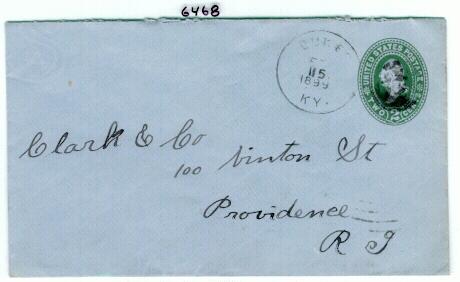 6468
DUKE
15
1899
KY.
UNITED STATES POSTAGE
TWO 2 CENTS
Clark & Co
100 Vinton St
Providence
R I